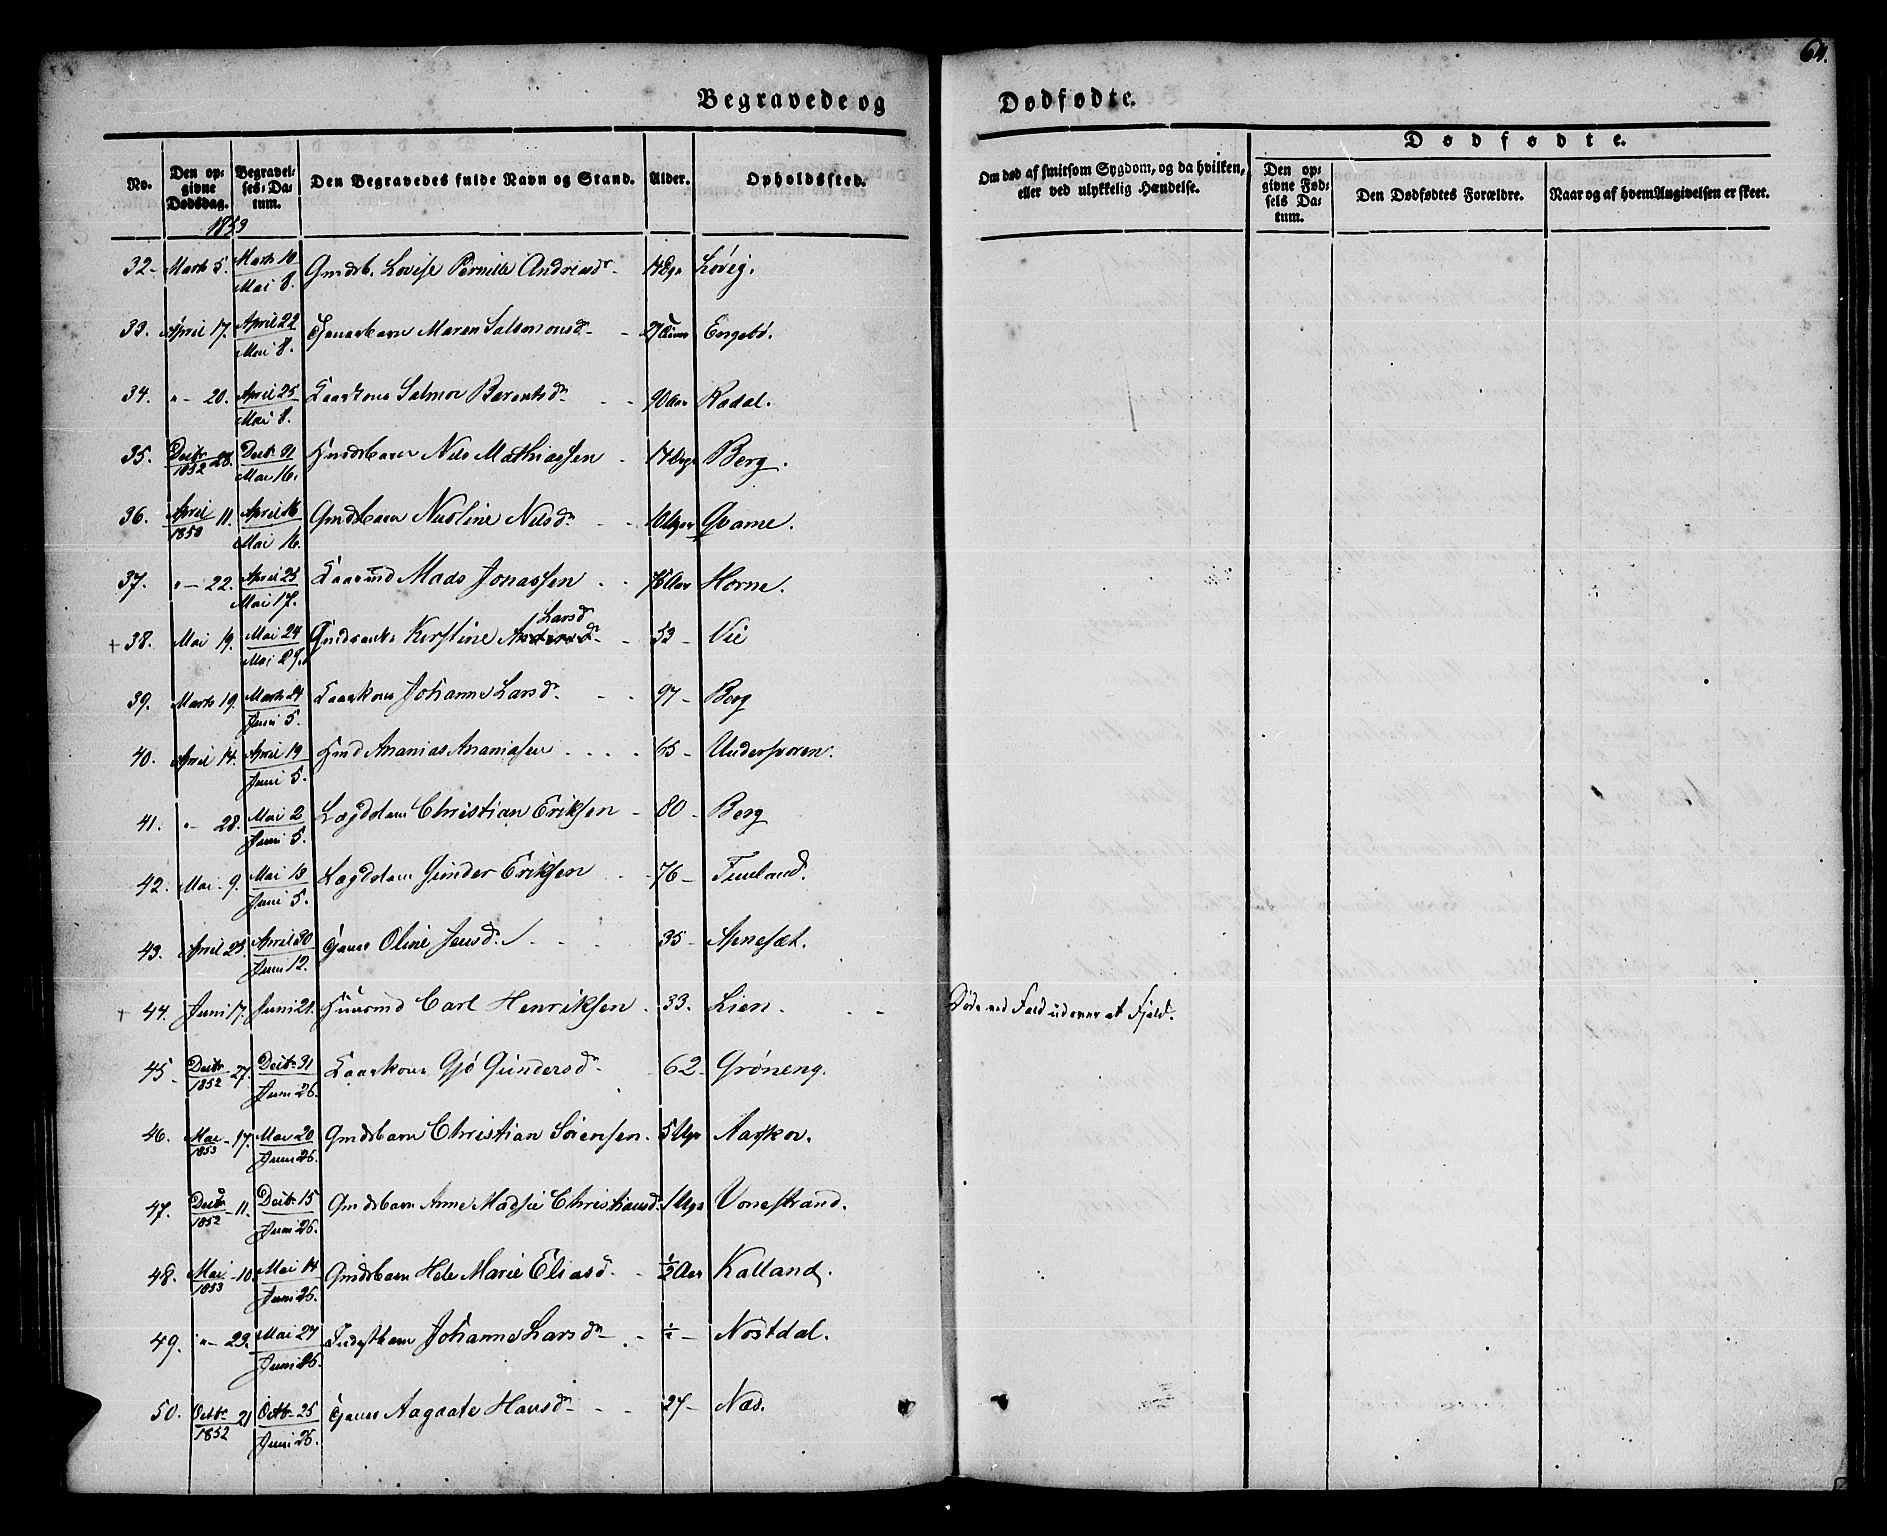 64.
Begravede og Dødfødte.
No.
Den opgivne Dødsdag.
Begravelses-Datum.
Den Begravedes fulde Navn og Stand.
Alder.
Opholdssted.
Om død af smitsom Sygdom, og da hvilken, eller ved ulykkelig Hændelse.
Dødfødte.
Den opgivne Fødsels Datum.
Den Dødfødtes Forældre.
Naar og af hvem Angivelsen er skeet.
1853
32. Marts 5. Marts 10 Mai 8. Gmdsb. Lovise Pernille Andreasdr Løvig.
33. April 17. April 22 Mai 8. Maren Salomonsdr Engebø.
34. "- 20. April 25 Mai 8. Salmov Barentsdr 90 Aar Kadal.
35. Decbr 1852 28. Decbr 31 Mai 16. Nils Mathiassen 14 Dage Berg.
36. April 1853 11. April 16 Mai 16. Gmdsbarn Nicoline Nilsdr Qvame.
37. "- 22. April 25 Mai 17. Mads Jonassen 75 Aar Horne.
38. Mai 19. Mai 24 Mai 29. Gmdsenke Kirstine Larsd 53 - Vie
39. Marts 19. Marts 24 Juni 5. Kaarkone Johanne Larsd. 97 - Berg
40. April 14. April 19 Juni 5. Ananias Ananiasen 65 - Undersporen.
41. "- 28. Mai 2 Juni 5. Lægdslem Christian Eriksen 80 - Berg
42. Mai 9. Mai 13 Juni 5. Lægdslem Gunder Eriksen 76 - Tunland.
43. April 23. April 30 Juni 12. Oline Jensd. 35 - Apneset.
44. Juni 17. Juni 21. Huusmd Carl Henriksen 33. Lien. Døde ved Fald udover et Fjeld.
45. Decbr 1852 27. Decbr 31 Juni 26. Kaarkone Gjø Gundersdr 62 - Grøneng.
46. Mai 1853 17. Mai 20 Juni 26. Gmdsbarn Christian Sørensen. 5 Uger Aaskov.
47. Decbr 1852 11. Decbr 15 Juni 26. Gmdsbarn Anne Madsie Christiansd. 1 Uge Vonestrand.
48. Mai 1853 10. Mai 14 Juni 26. Gmdsbarn Marie Eliasd. ½ Aar Kalland.
49. "- 23. Mai 27 Juni 26. Johanne Larsdr Nostdal.
50. Octbr 1852 21 Octbr 25 Juni 26. Aagaate Hansdr 27 - Næs.